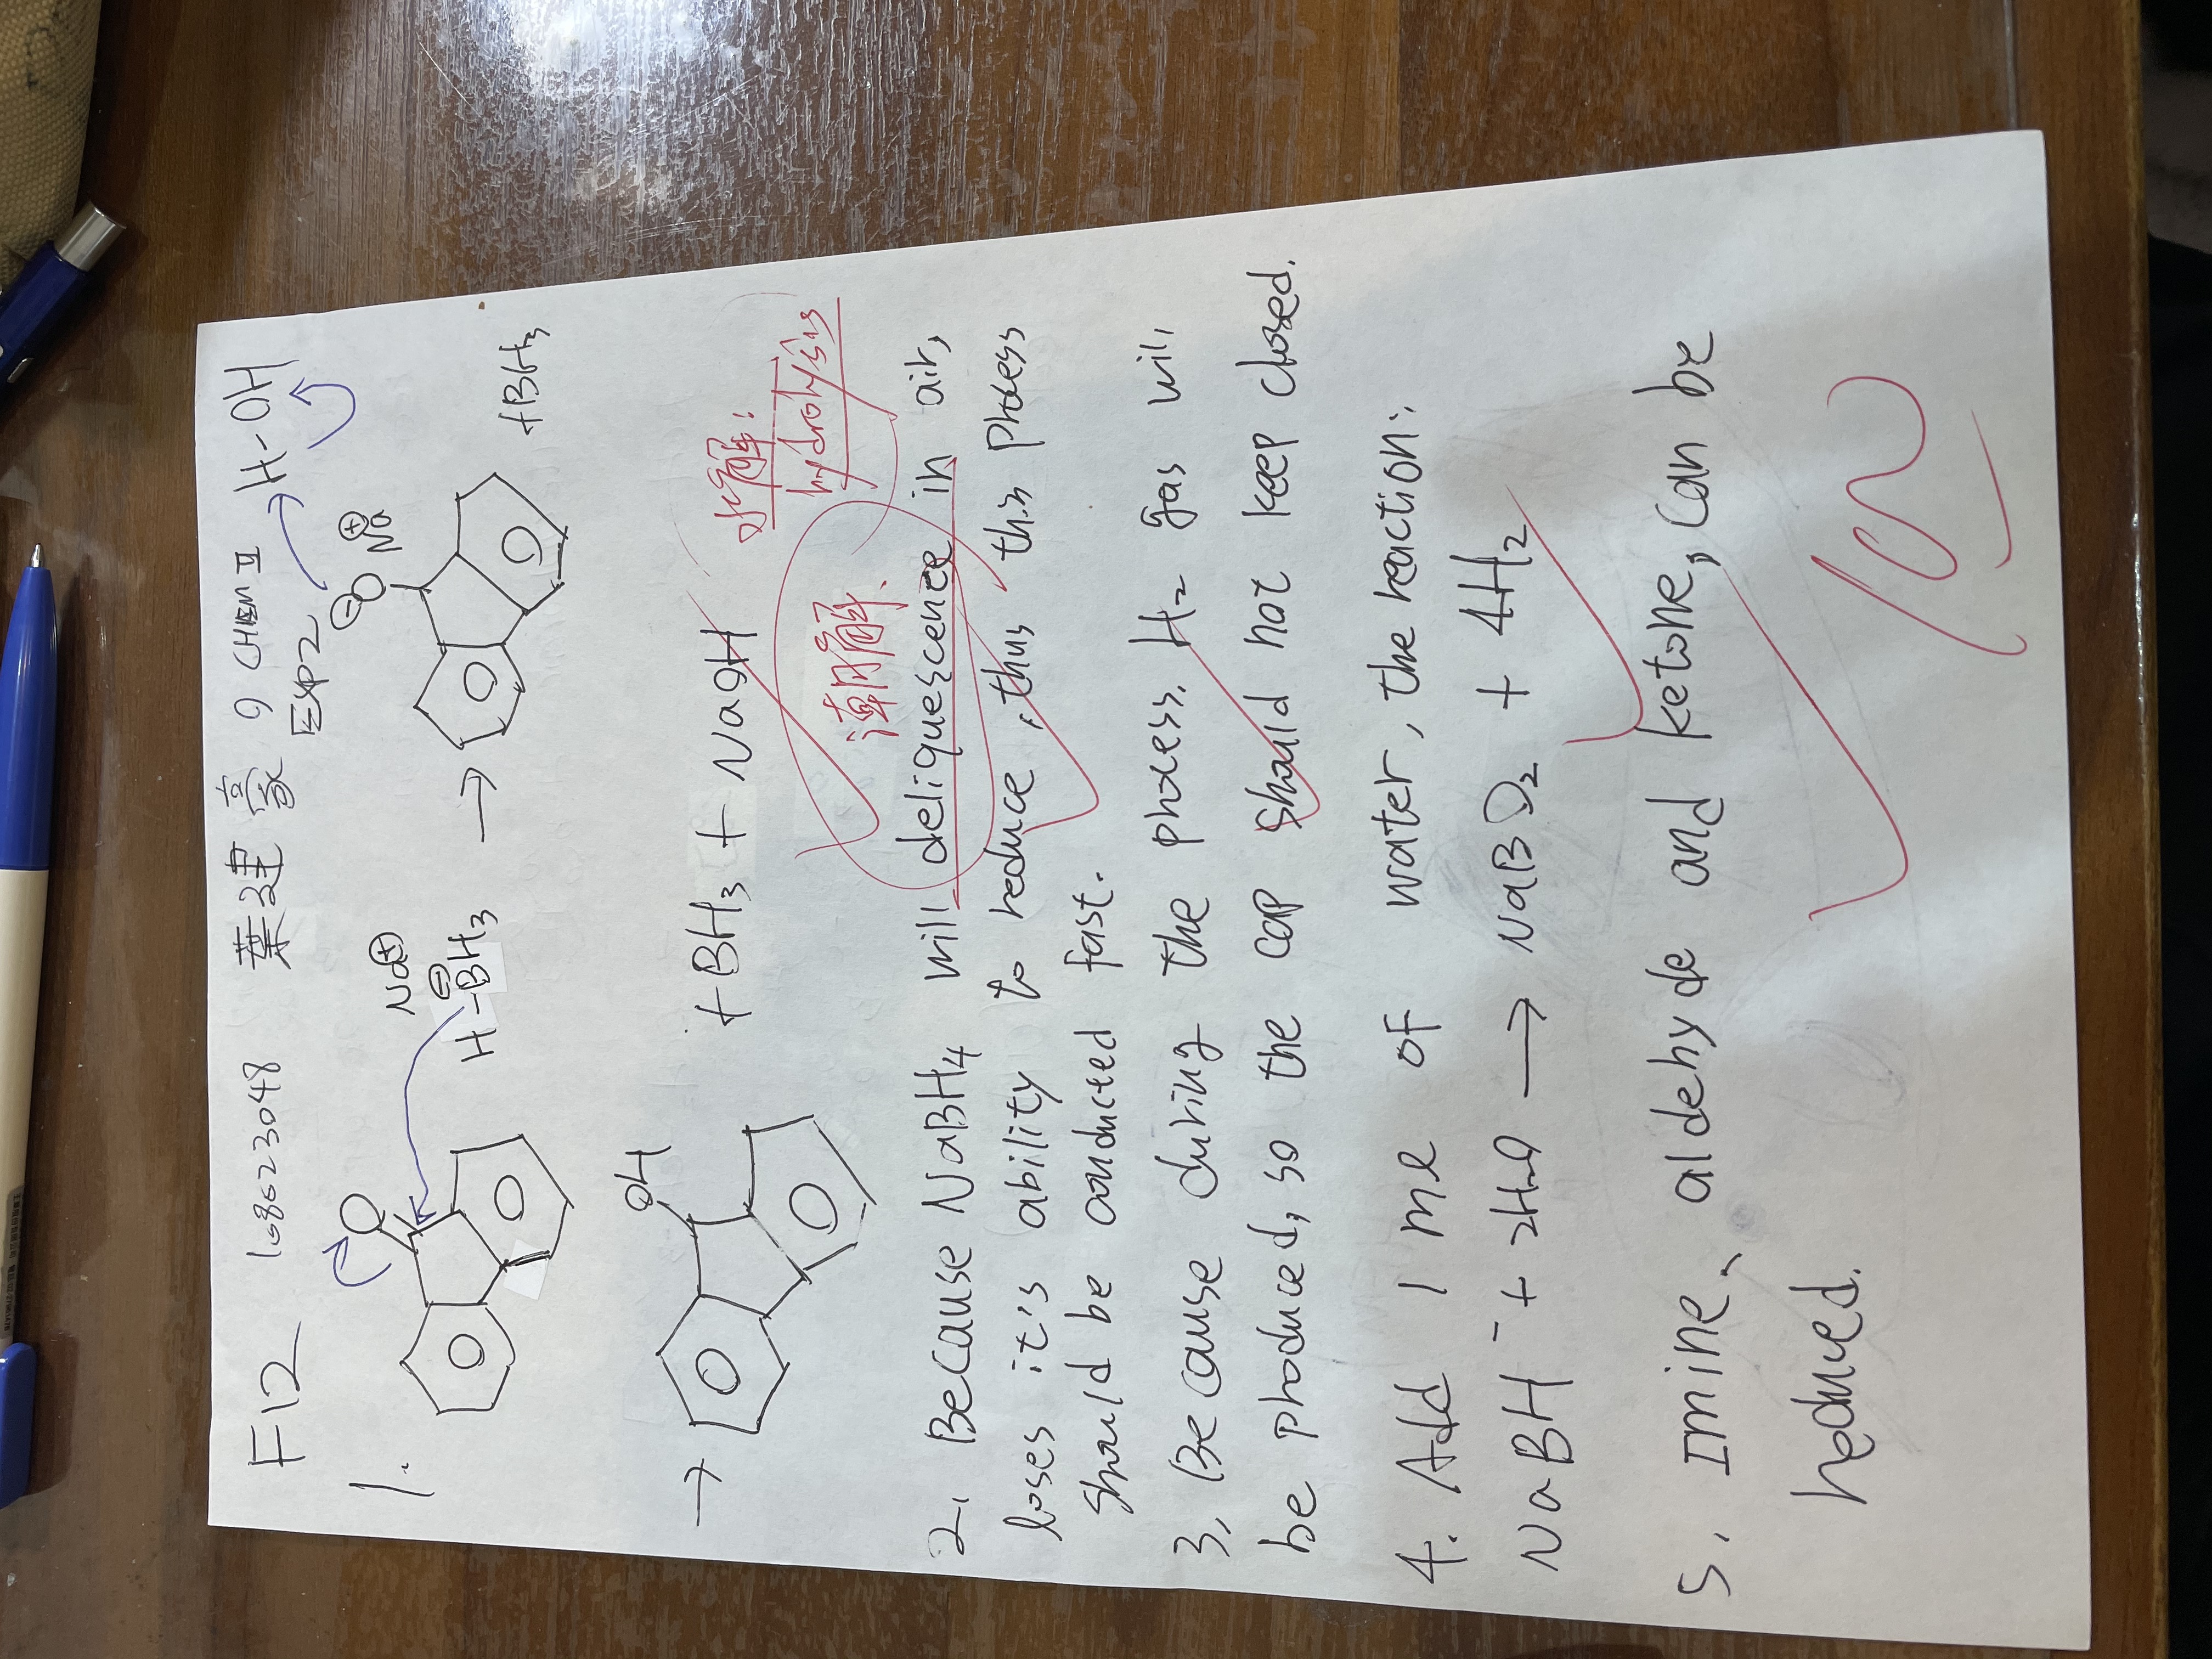 F12 108023048 葉建豪 O CHEM II
EXP2
H-OH
1.
O
Na⊕
⊖
H-BH3
→
⊖
O Na⊕
+BH3
→
OH
+BH3 + NaOH
水解:
hydrolysis
潮解、
2. Because NaBH4 will deliquescence in air,
loses it's ability to reduce, thus this process
should be conducted fast.
3. Because during the process, H2 gas will
be produced, so the cap should not keep closed.
4. Add 1 ml of water, the reaction:
NaBH⁻ + 2H2O → NaBO2 + 4H2
5. Imine、aldehyde and ketone, can be
reduced.
100